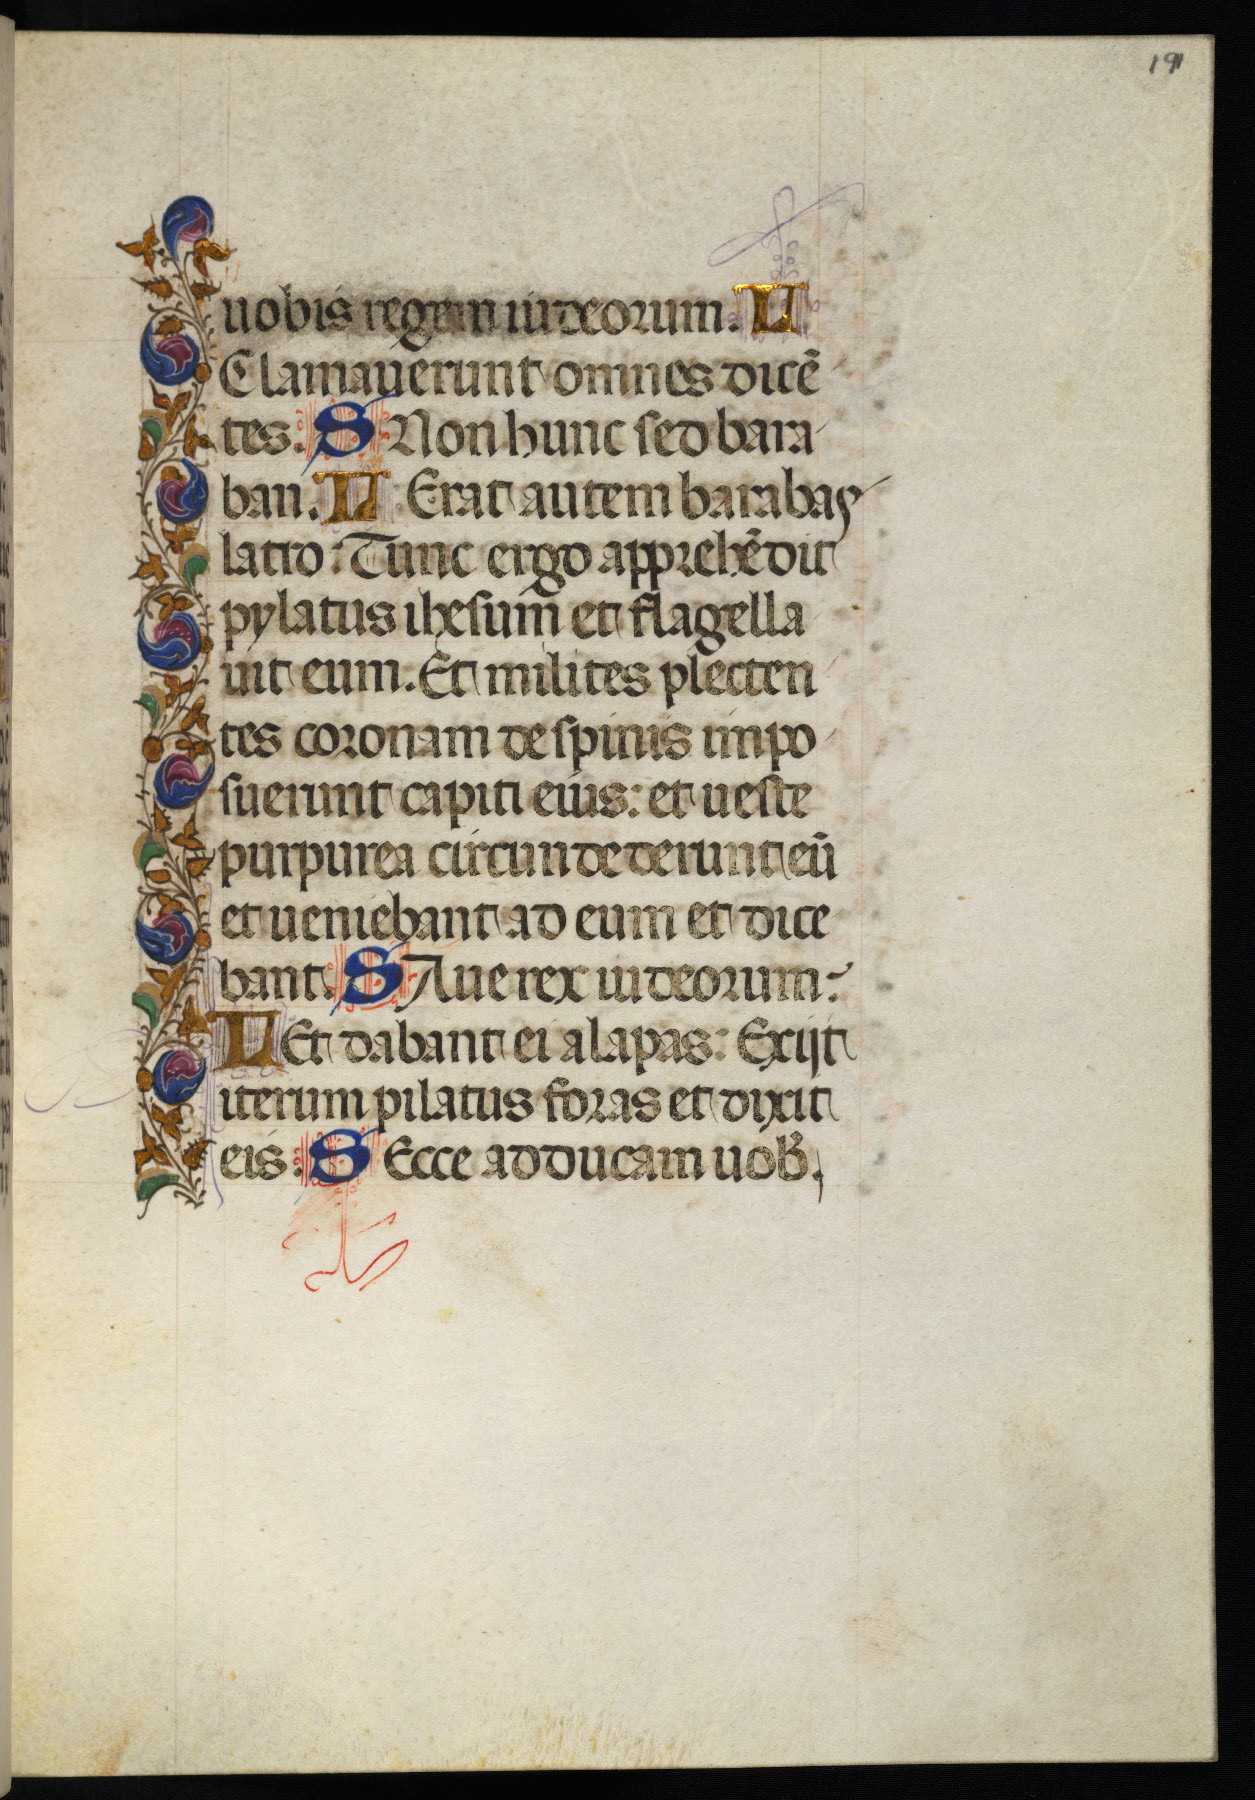 19
uobis regem iudeorum. L
Clamauerunt omnes dicē
tes. S Non hunc sed bara
ban. L Erat autem barabas
latro: Tunc ergo apprehēdit
pylatus ihesum̄ et flagella
uit eum. Et milites plecten
tes coronam de spinis impo
suerunt capiti eius: et ueste
purpurea circundederunt eū
et ueniebant ad eum et dice
bant. S Aue rex iudeorum:
L Et dabant ei alapas: Exijt
iterum pilatus foras et dixit
eis: S Ecce adducam uob̄.